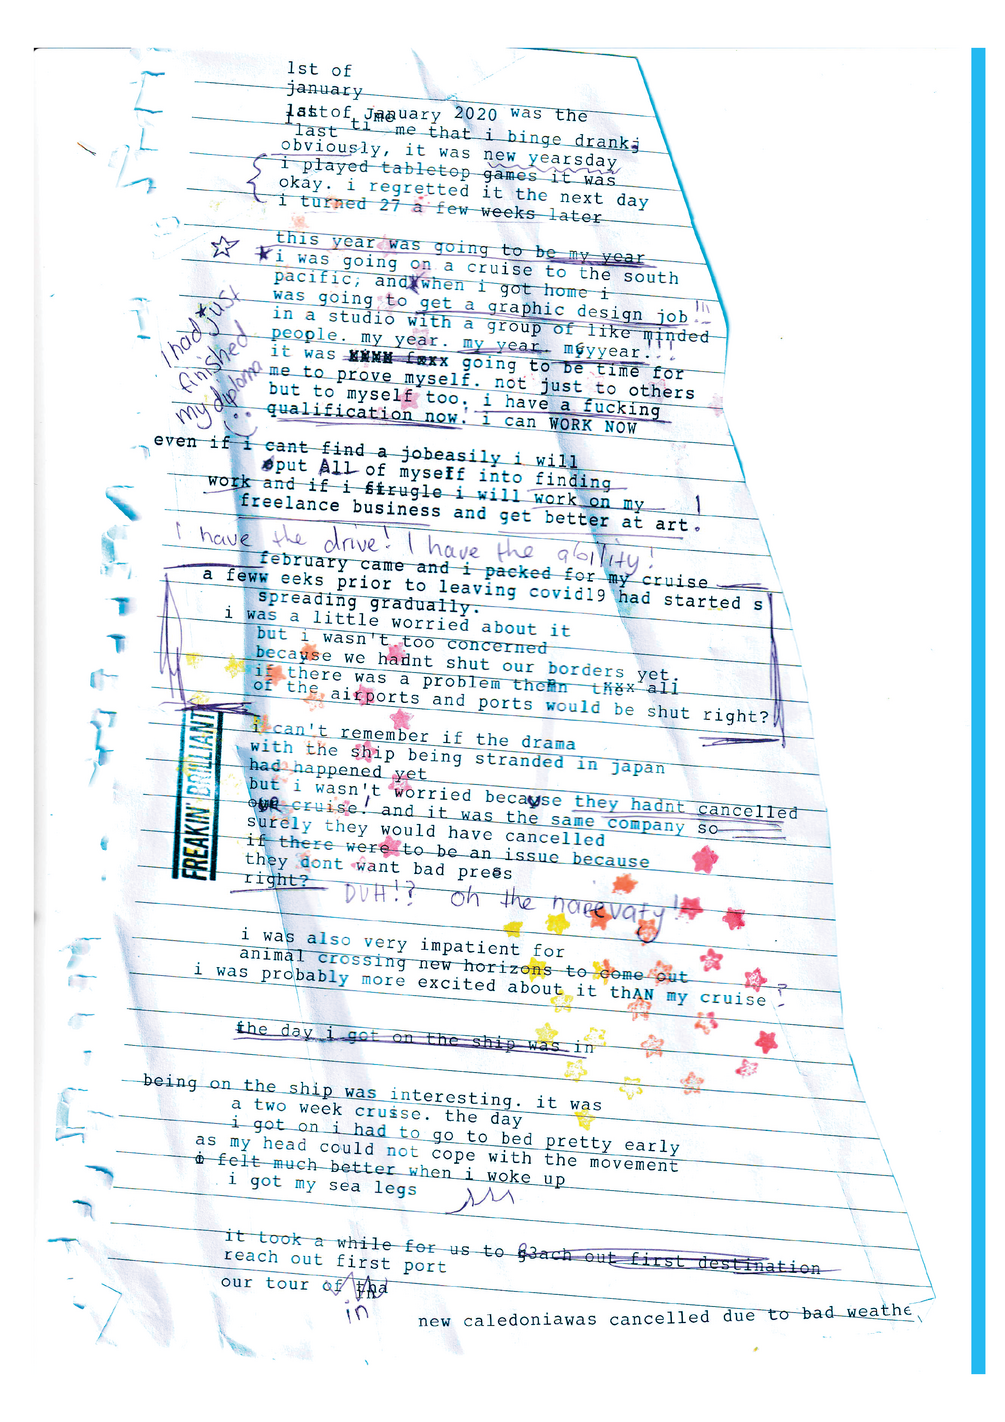 1st of
january
1st of January 2020 was the
last time that i binge drank;
obviously, it was new yearsday
i played tabletop games it was
okay. i regretted it the next day
i turned 27 a few weeks later
this year was going to be my year
i was going on a cruise to the south
pacific; and when i got home i
was going to get a graphic design job !!!
in a studio with a group of like minded
people. my year. my year. myyyear...
it was going to be time for
me to prove myself. not just to others
but to myself too. i have a fucking
qualification now! i can WORK NOW
I had just
finished
my diploma
even if i cant find a jobeasily i will
put All of myself into finding
work and if i strugle i will work on my
freelance business and get better at art. !
I have the drive! I have the ability!
february came and i packed for my cruise
a feww eeks prior to leaving covid19 had started s
spreading gradually.
i was a little worried about it
but i wasn't too concerned
because we hadnt shut our borders yet.
if there was a problem then all
of the airports and ports would be shut right?
FREAKIN' BRILLIANT
i can't remember if the drama
with the ship being stranded in japan
had happened yet
but i wasn't worried because they hadnt cancelled
our cruise! and it was the same company so
surely they would have cancelled
if there were to be an issue because
they dont want bad press
right? DUH!? oh the narevaty!
i was also very impatient for
animal crossing new horizons to come out
i was probably more excited about it thAN my cruise !
the day i got on the ship was in
being on the ship was interesting. it was
a two week crusse. the day
i got on i had to go to bed pretty early
as my head could not cope with the movement
i felt much better when i woke up
i got my sea legs
it took a while for us to g3ach out first destination
reach out first port
our tour of tha
in
new caledoniawas cancelled due to bad weathe